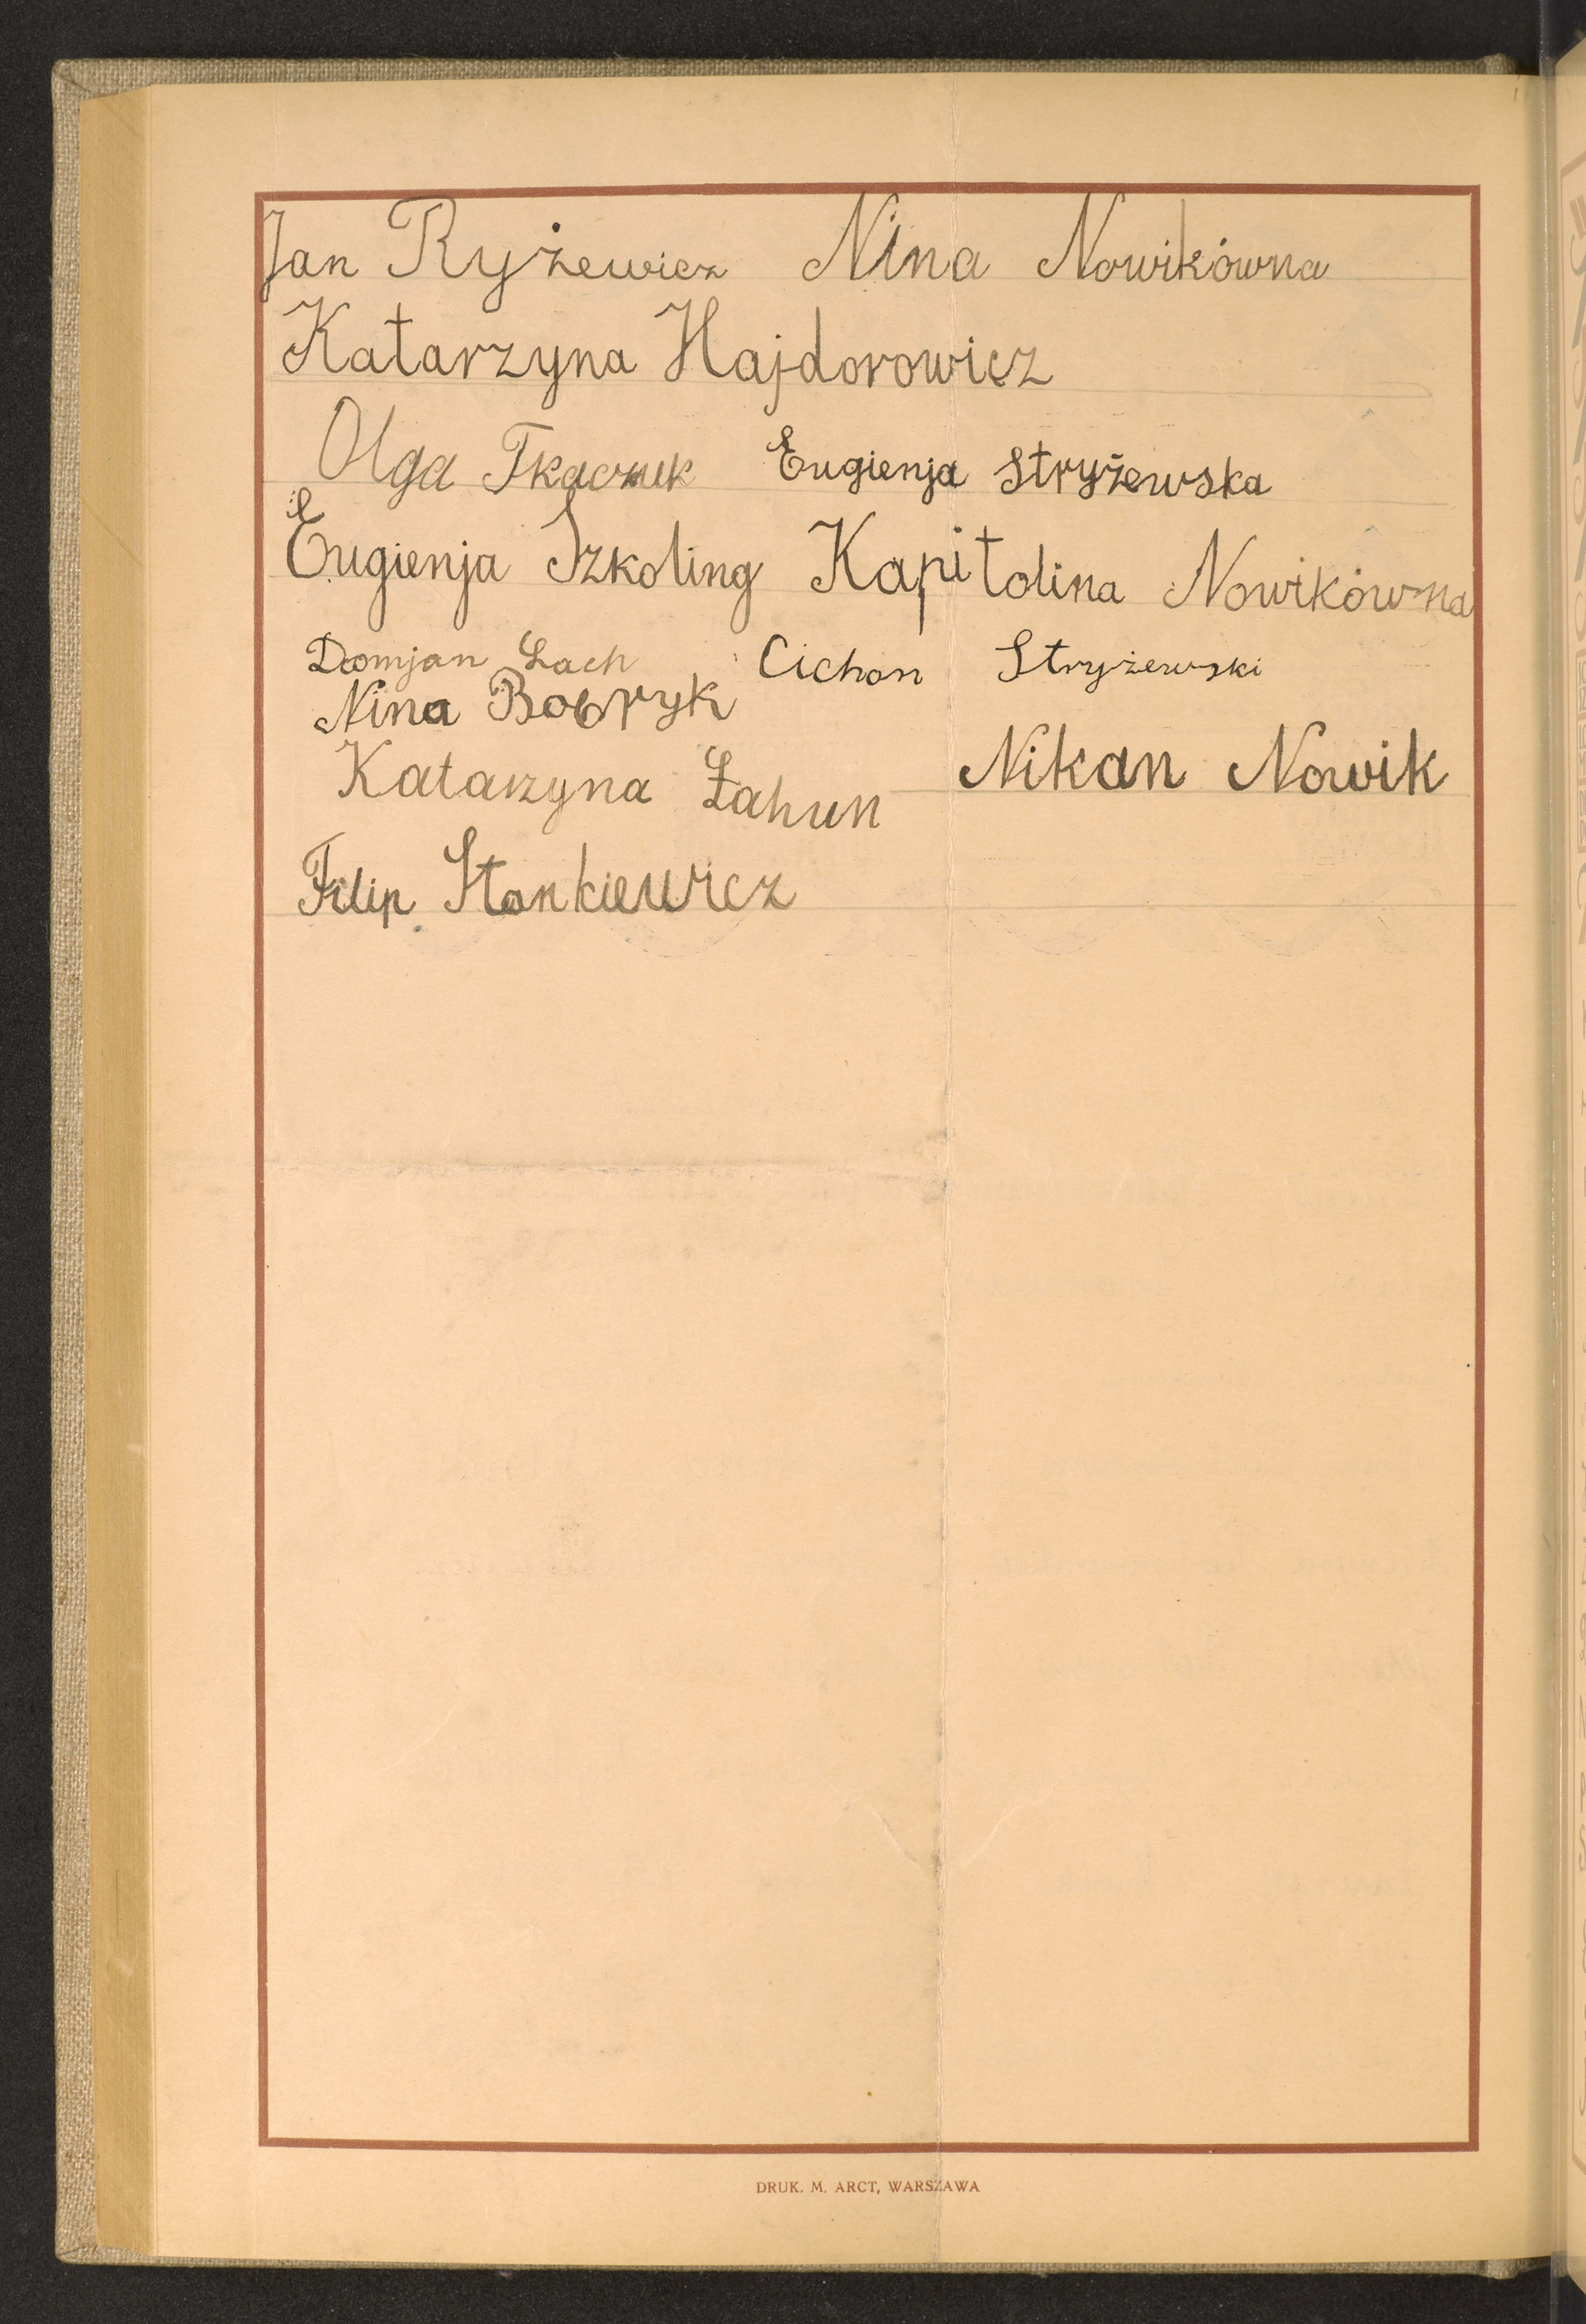 Jan Ryżewicz Nina Nowikówna
Katarzyna Hajdorowicz
Olga Tkaczuk Eugienja Stryżewska
Eugienja Szkoling Kapitolina Nowikówna
Domjan Łach Cichon Stryżewski
Nina Bobryk
Katarzyna Łahun Nikan Nowik
Filip Stankiewicz
DRUK. M. ARCT, WARSZAWA